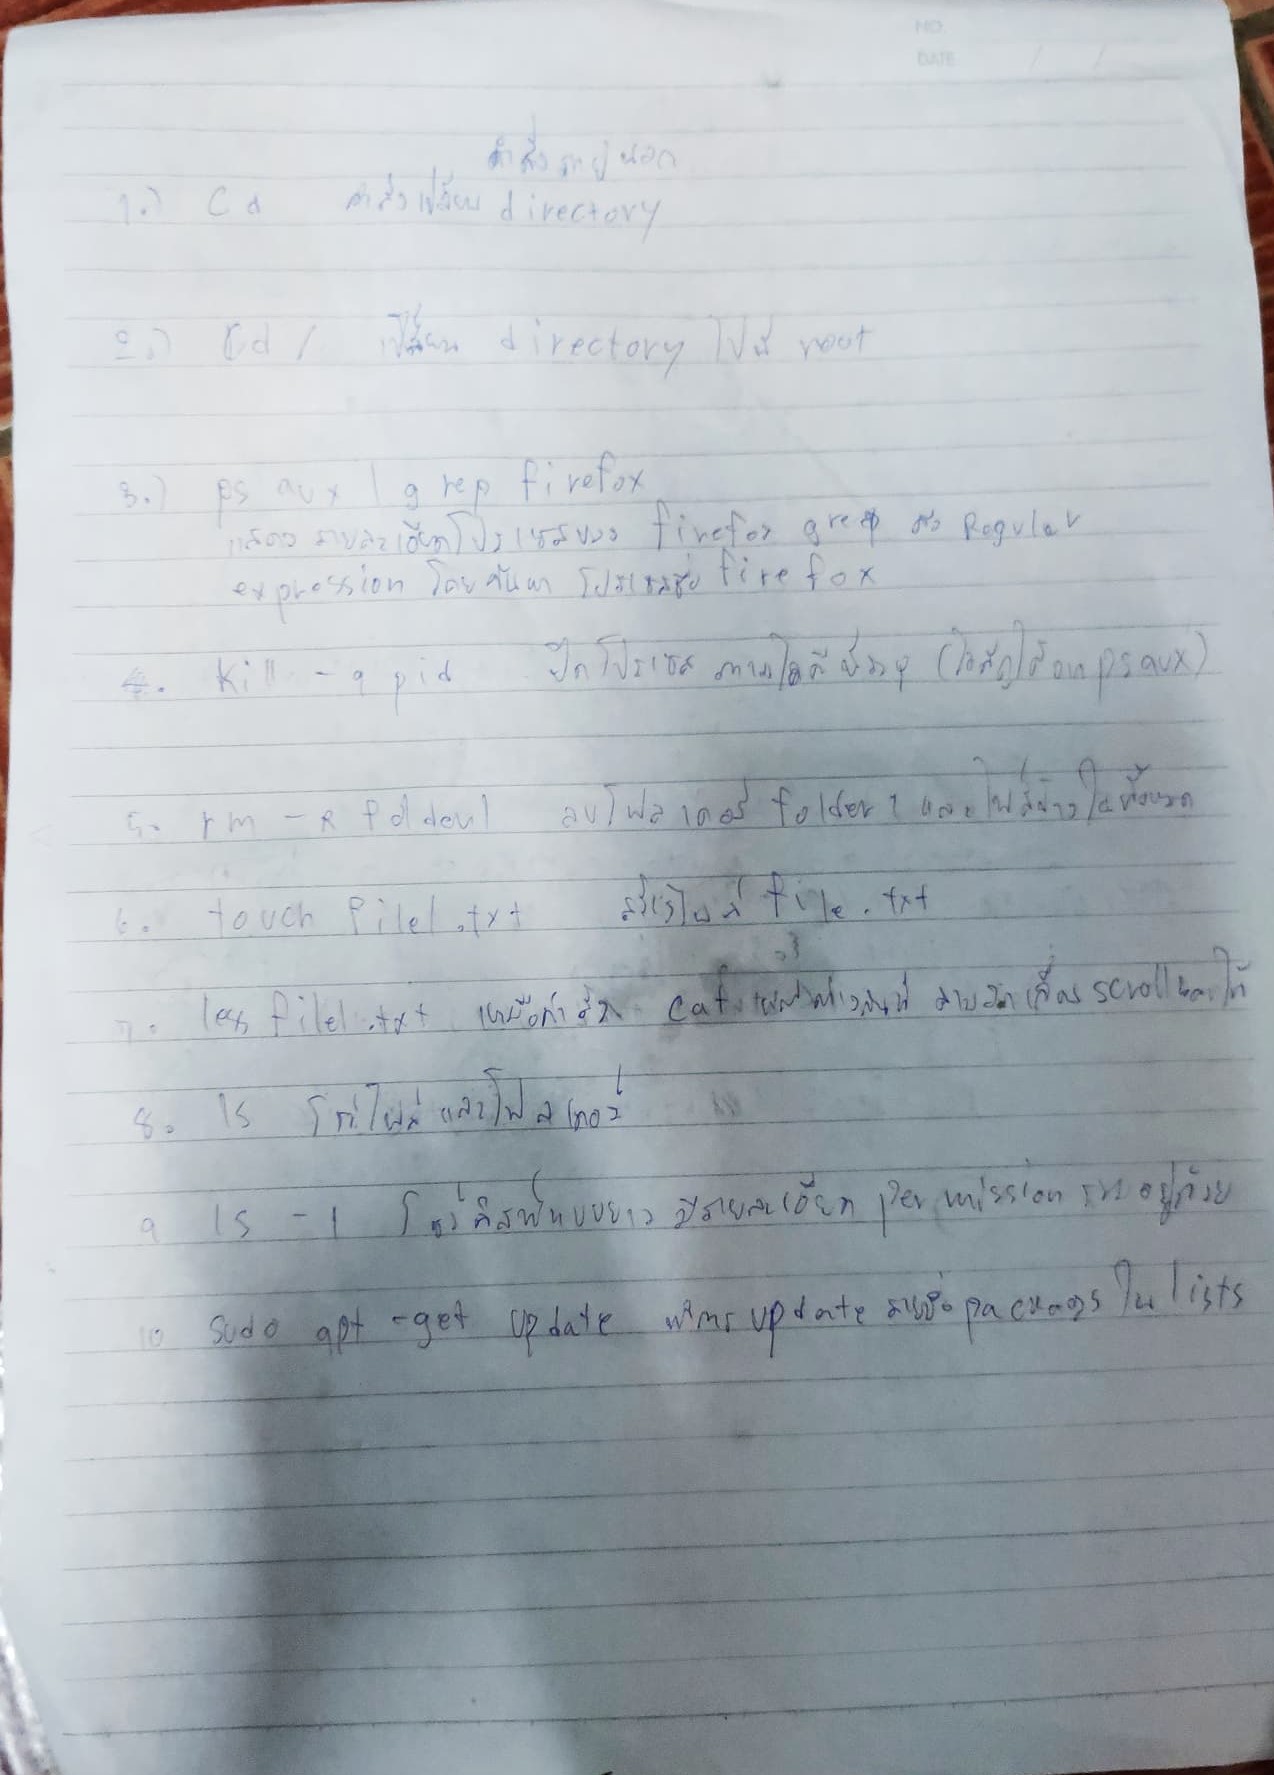 NO.
DATE / /
คำสั่ง
1.) Cd คำสั่งเปลี่ยน directory
2.) Cd / เปลี่ยน directory ไปที่ root
3.) ps aux | grep firefox
แสดงรายละเอียดโปรเซสของ firefox grep คือ Regular
expression โดยค้นหา โปรเซสชื่อ firefox
4. Kill -9 pid ปิดโปรเซส ตามไอดีที่ระบุ (ไอดีดูได้จาก ps aux)
5. rm -R folder1 ลบโฟลเดอร์ folder1 และไฟล์ข้างในทั้งหมด
6. touch file1.txt สร้างไฟล์ file.txt
7. less file1.txt เหมือนคำสั่ง cat แต่คำสั่งนี้ สามารถเลื่อน scroll ได้
8. ls โชว์ไฟล์และโฟลเดอร์
9 ls -l โชว์ลิสท์แบบยาว มีรายละเอียด permission รวมอยู่ด้วย
10 sudo apt-get update ทำการ update รายชื่อ packages ใน lists